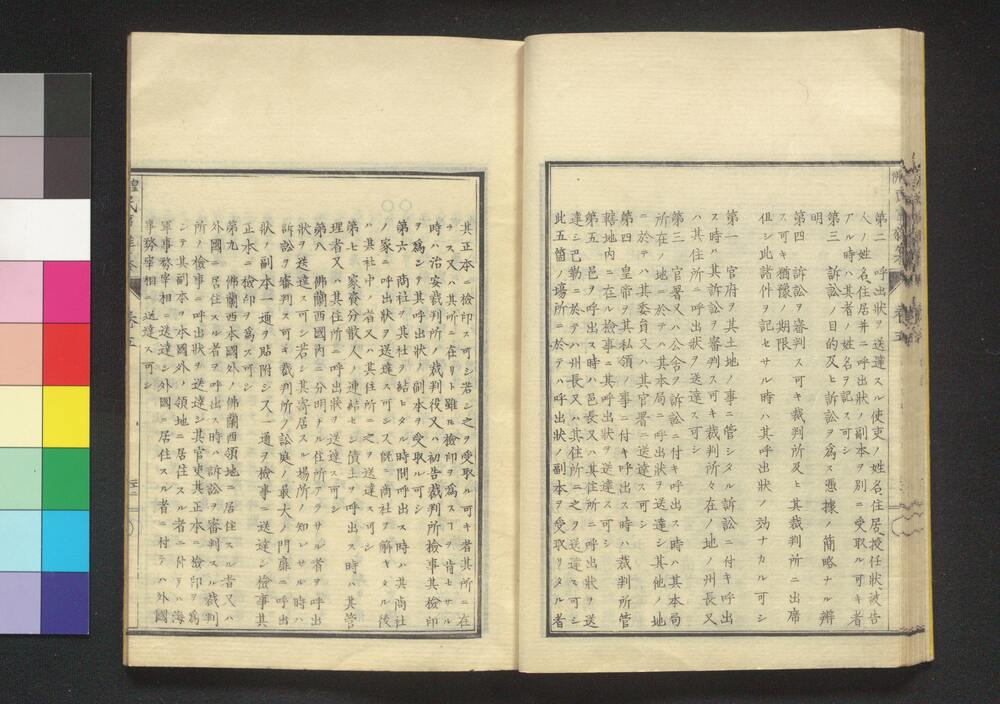 第二　呼出狀ヲ送達スル使吏ノ姓名住居授任狀被告
人ノ姓名住居并ニ呼出狀ノ副本ヲ別ニ受取ル可キ者
アル時ハ其者ノ姓名ヲ記ス可シ
第三　訴訟ノ目的及ヒ訴訟ヲ爲ス憑據ノ簡略ナル辨
明
第四　訴訟ヲ審判ス可キ裁判所及ヒ其裁判所ニ出席
ス可キ猶豫ノ期限
但シ此諸件ヲ記セサル時ハ其呼出狀ノ効ナカル可シ
第一　官府ヲ其土地ノ事ニ管シタル訴訟ニ付キ呼出
ス時ハ其訴訟ヲ審判ス可キ裁判所々在ノ地ノ州長又
ハ其住所ニ呼出狀ヲ送達ス可シ
第三　官署又ハ公舍ヲ訴訟ニ付キ呼出ス時ハ其本局
所在ノ地ニ於テハ其本局ニ呼出狀ヲ送達シ其他ノ地
ニ於テハ其委員又ハ其官署ニ送達ス可シ
第四　皇帝ヲ其私領ノ事ニ付キ呼出ス時ハ裁判所管
轄地内ニ在ル檢事ニ其呼出狀ヲ送達ス可シ
第五　邑ヲ呼出ス時ハ邑長又ハ其住所ニ呼出狀ヲ送
達シ巴勒ニ於テハ州長又ハ其住所ニ之ヲ送達ス可シ
此五箇ノ塲所ニ於テハ呼出狀ノ副本ヲ受取リタル者
其正本ニ檢印ス可シ若シ之ヲ受取ル可キ者其所ニ在
ラス又ハ其所ニ在リト雖モ檢印ヲ爲スヿヲ肯セサル
時ハ治安裁判所ノ裁判役又ハ初告裁判所檢事其檢印
ヲ爲シテ其呼出狀ノ副本ヲ受取ル可シ
第六　商社ヲ其社ヲ結ヒタル時間呼出ス時ハ其商社
ノ家ニ呼出狀ヲ送達ス可シ又既ニ商社ヲ解キタル後
ハ其社中ノ者又ハ其住所ニ之ヲ送達ス可シ
第七　家資分散人ノ連結セシ債主ヲ呼出ス時ハ其管
理者又ハ其住所ニ呼出狀ヲ送達ス可シ
第八　佛蘭西國内ニ分明トル住所アラサル者ヲ呼出
狀ヲ送達ス可シ若シ其寄居スル塲所ノ知レサル時ハ
訴訟ヲ審判ス可キ裁判所ノ訟庭ノ最大ノ門扉ニ呼出
狀ノ副本一通ヲ貼附シ又一通ヲ檢事ニ送達シ檢事其
正本ニ檢印ヲ爲ス可シ
第九　佛蘭西本國外ノ佛蘭西領地ニ居住スル者又ハ
外國ニ居住スル者ヲ呼出ス時ハ訴訟ヲ審判スル裁判
所ノ檢事ニ呼出狀ヲ送達シ其官吏其正本ニ檢印ヲ爲
シテ其副本ヲ本國外ノ領地ニ居住スル者ニ付テハ海
軍事務宰相ニ送達シ外國ニ居住スル者ニ付テハ外國
事務宰相ニ送達ス可シ